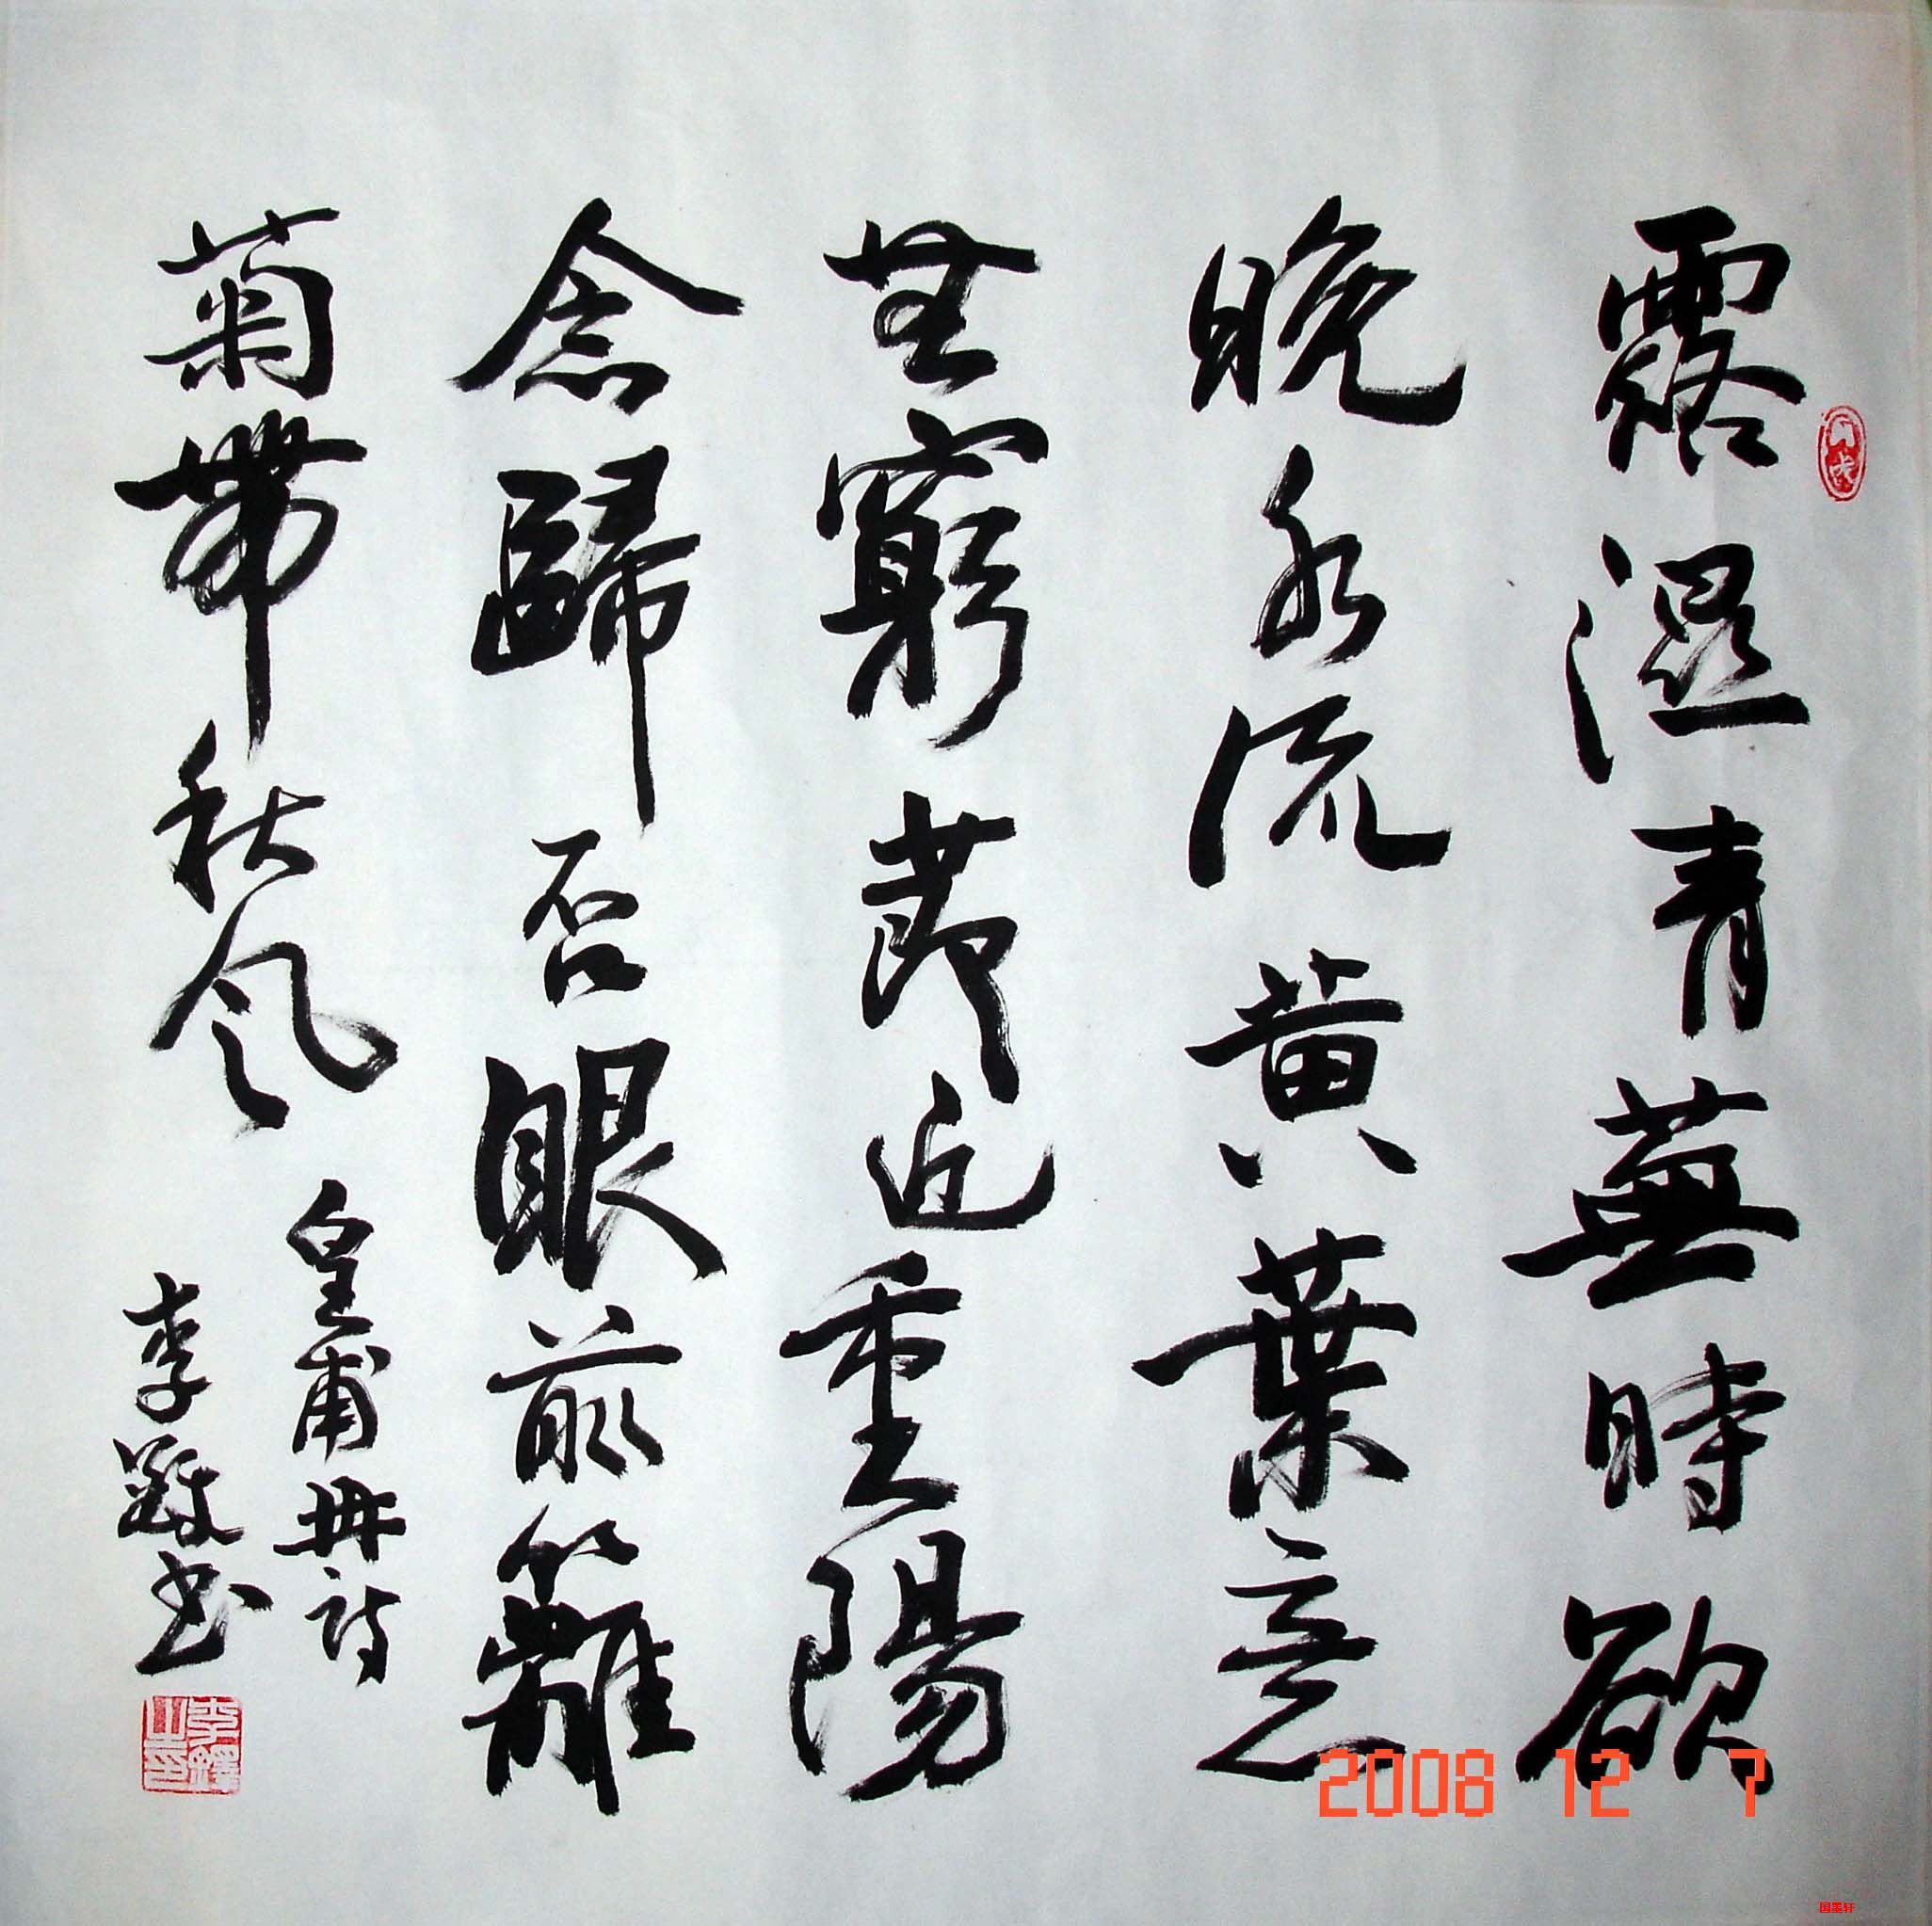 露濕青蕪時欲
晚水流黃葉意
無窮節近重陽
念歸否眼前籬
菊帶秋風
皇甫冉詩
李鐸书
李鐸之印
2008 12 7
国墨轩